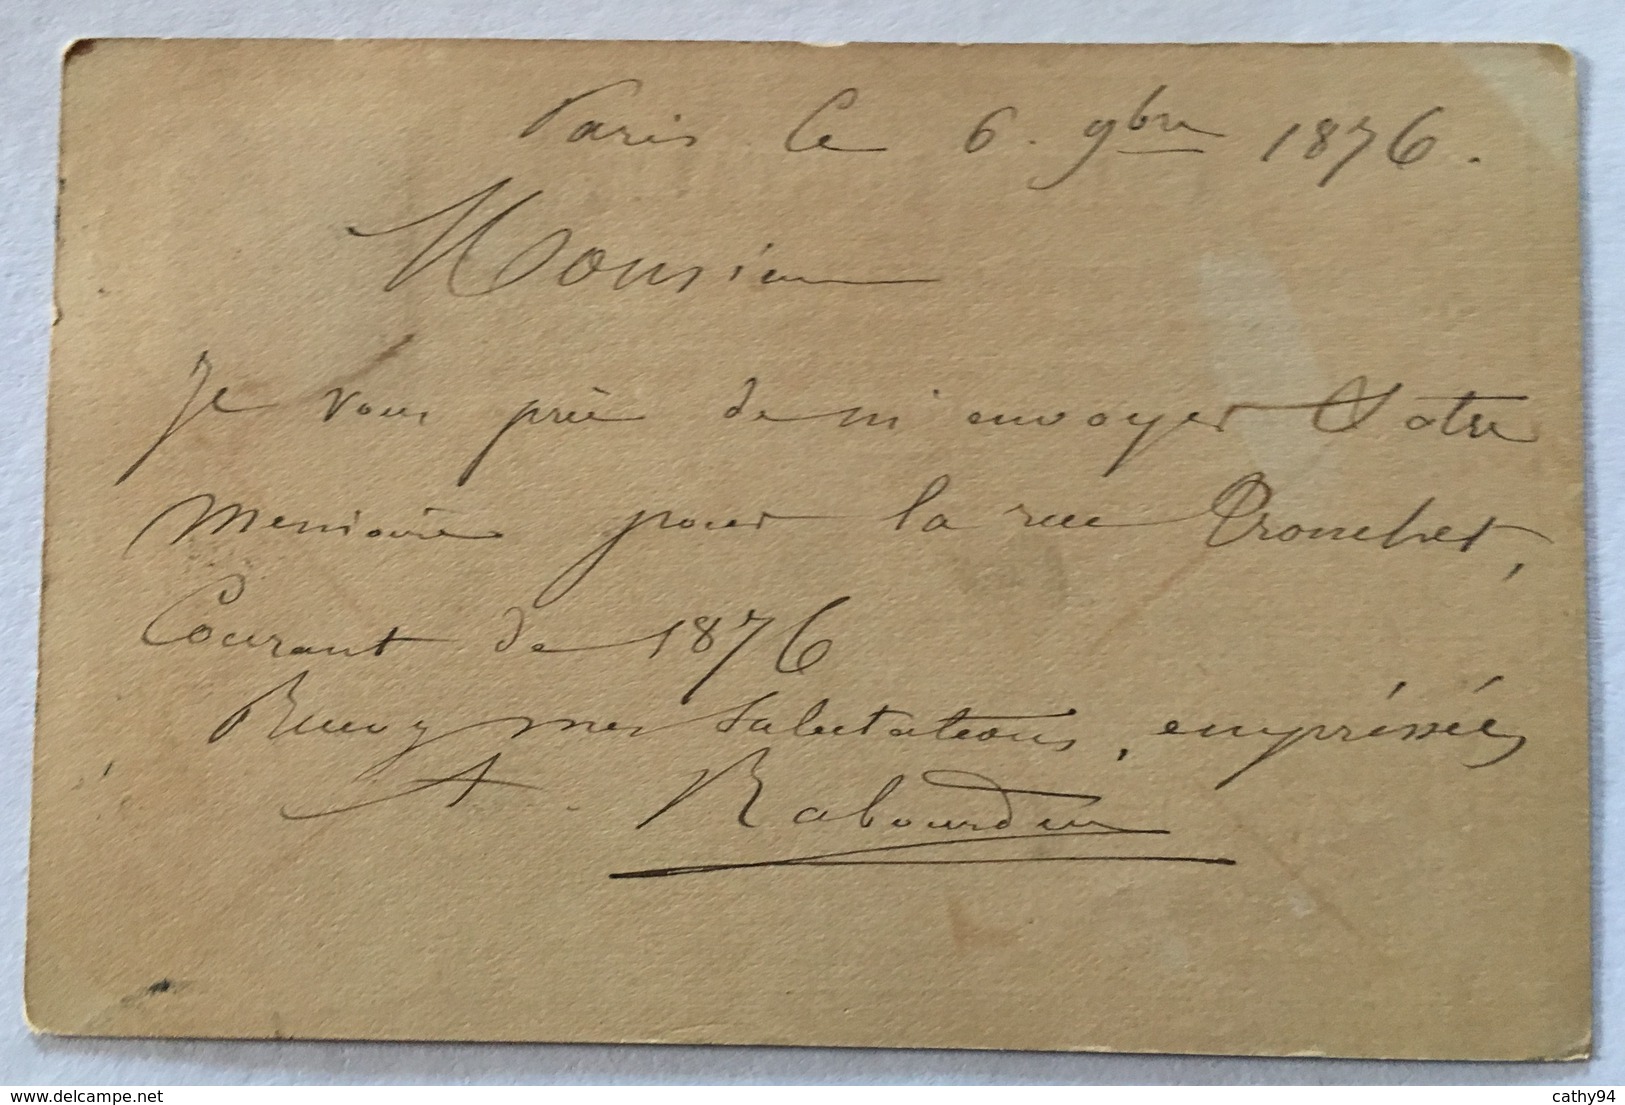 Paris le 6. 9bre 1876.
Monsieur
Je vous prie de m'envoyer Votre
memoire pour la rue Tronchet,
Courant de 1876
Recevez mes Salutations, empréssées
A. Rabourdin
delcampe.net
cathy94